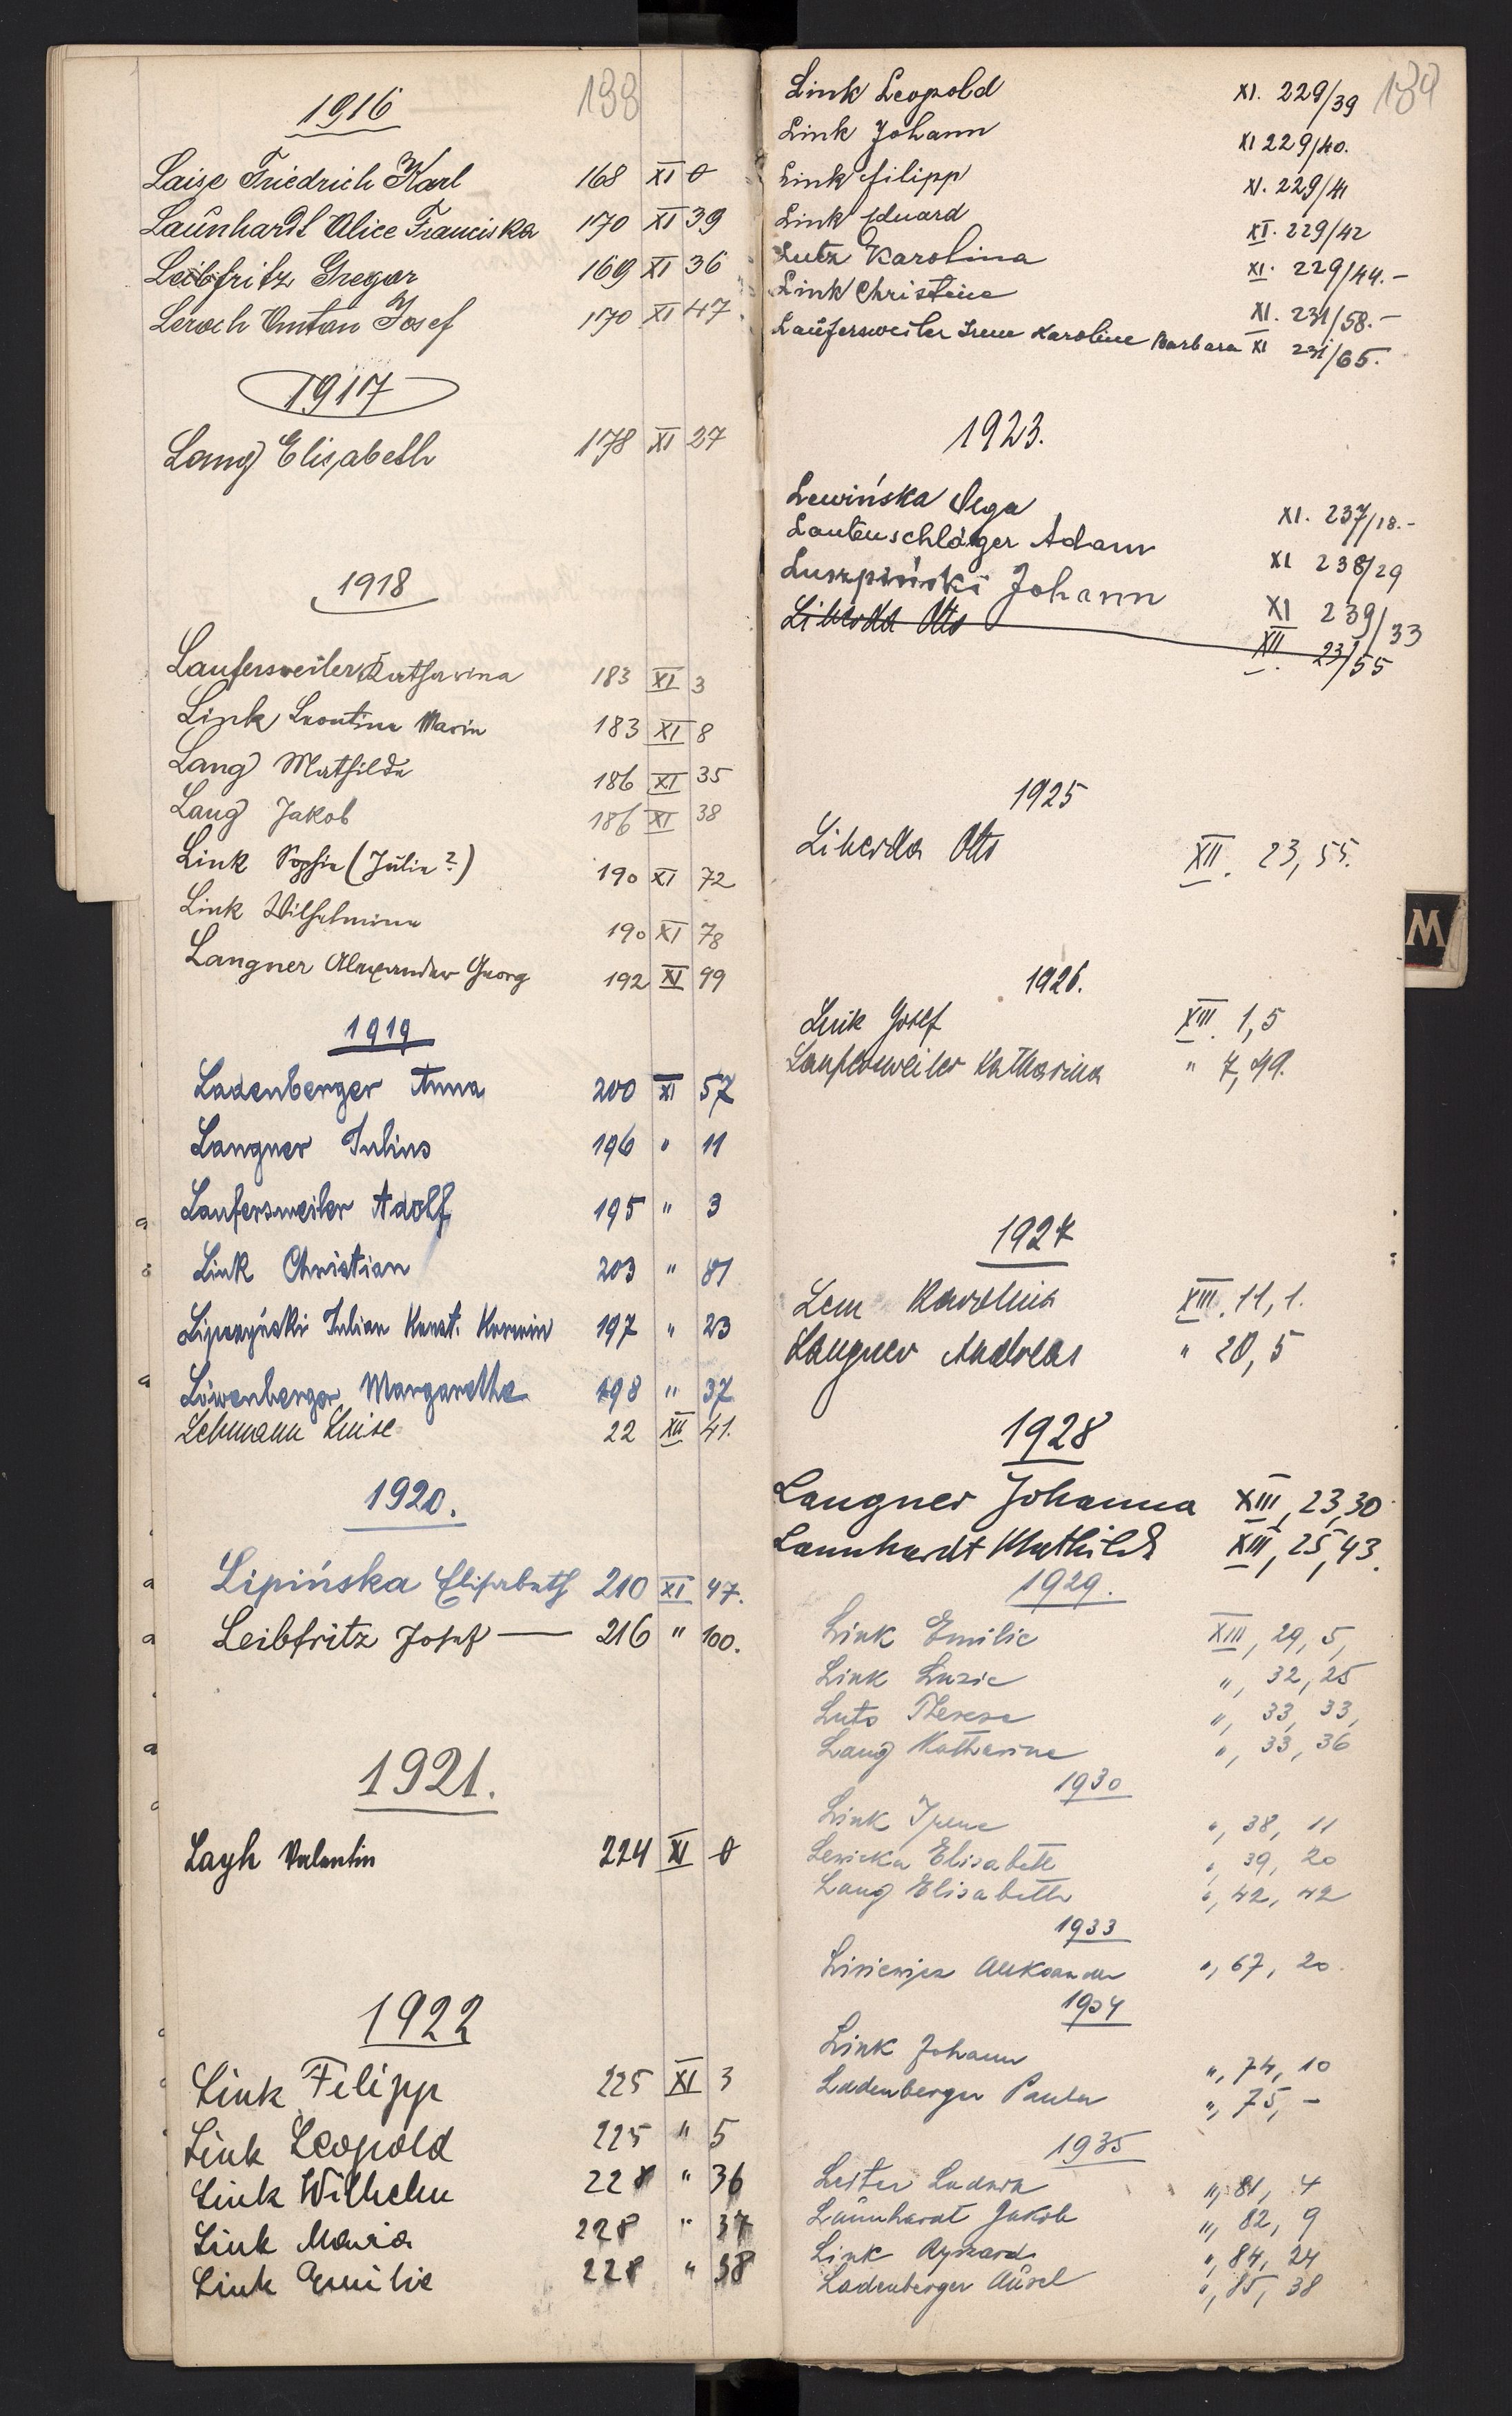 138
1916
Laise Friedrich Karl 168 XI 0
Launhardt Alice Franciska 170 XI 39
Leibfritz Gregor 169 XI 36
Leroch Anton Josef 170 XI 47
1917
Lang Elisabeth 178 XI 27
1918
Laufersweiler Katharina 183 XI 3
Link Leontina Maria 183 XI 8
Lang Mathilde 186 XI 35
Lang Jakob 186 XI 38
Link Sophie (Julie?) 190 XI 72
Link Wilhelmine 190 XI 78
Langner Alexander Georg 192 XI 99
1919
Ladenberger Anna 200 XI 57
Langner Julius 196 " 11
Laufersweiler Adolf 195 " 3
Link Christian 203 " 81
Lipczyński Julian Konst. Korwin 197 " 23
Löwenberger Margarethe 198 " 37
Lehmann Luise 22 XII 41.
1920.
Lipińska Elisabeth 210 XI 47.
Leibfritz Josef — 216 " 100.
1921.
Layh Valentin 224 XI 0
1922
Link Filipp 225 XI 3
Link Leopold 225 " 5
Link Wilhelm 228 " 36
Link Maria 228 " 37
Link Emilie 228 " 38
139
Link Leopold XI. 229/39
Link Johann XI 229/40.
Link filipp XI. 229/41
Link Eduard XI. 229/42
Lutz Karolina XI. 229/44.-
Link Christine XI. 231/58.-
Laufersweiler Irene Karoline Barbara XI 231/65.
1923.
Lewińska Olga XI. 237/18.-
Lautenschläger Adam XI 238/29
Luszpiński Johann XI 239/33
Liberda Otto XII. 23/55
1925
Liberda Otto XII. 23, 55.
1926.
Link Josef XIII. 1, 5
Laufersweiler Katharina " 7, 49.
1927
Lem Karolina XIII. 11, 1.
Langner Andreas " 20, 5
1928
Langner Johanna XIII, 23, 30
Launhardt Mathilde XIII, 25, 43.
1929.
Link Emilie XIII, 29, 5,
Link Luzie ", 32, 25
Luto Therese ", 33, 33,
Lang Katharine ", 33, 36
1930
Link Irene ", 38, 11
Lewicka Elisabeth ", 39, 20
Lang Elisabeth ", 42, 42
1933
Lisiewicz Aleksander ", 67, 20.
1934
Link Johann ", 74, 10
Ladenberger Paula ", 75, -
1935
Lester Ludwik ", 81, 4
Launhardt Jakob ", 82, 9
Link Ryszard ", 84, 24
Ladenberger ", 85, 38
M